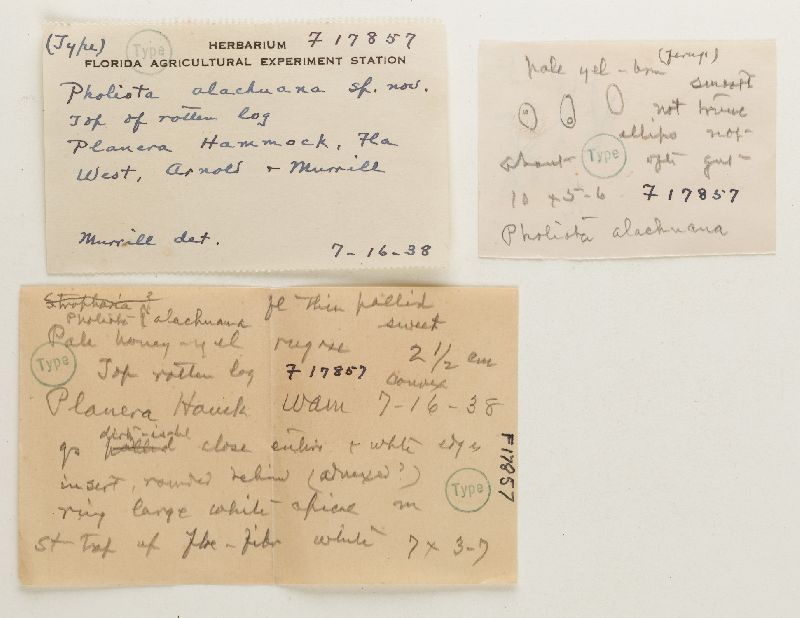 (Type) Type HERBARIUM F 17857
FLORIDA AGRICULTURAL EXPERIMENT STATION
Pholiota alachuana sp. nov.
Top of rotten log
Planera Hammock, Fla
West, Arnold + Murrill
Murrill det. 7-16-38
pale yel-brn
smooth
not trunc
ellips
about Type
10 x 5-6 F 17857
Pholiota alachuana
Stropharia ? fl thin pallid
Pholiota alachuana sweet
Pale honey-yel rugose 2 1/2 cm
Type Top rotten log F 17857 convex
Planera Hamk WAM 7-16-38
pallid close entire + white edges
insert, rounded behind (adnexed?) Type
ring large white apical
white 7 x 3-7
F17857